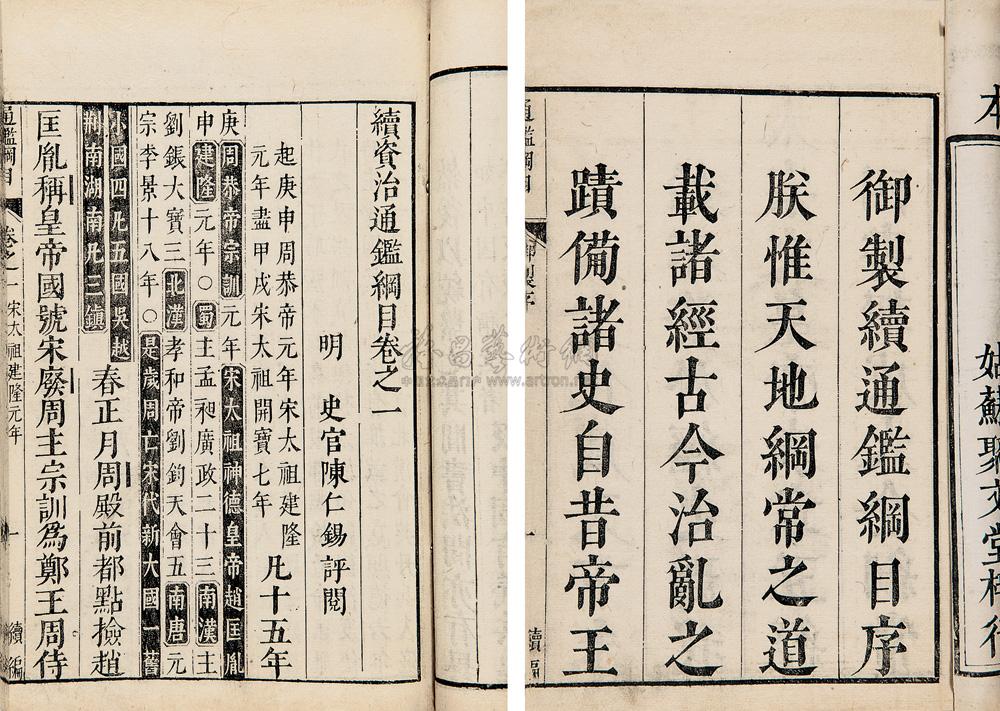 姑蘇聚文堂梓行
御製續通鑑綱目序
朕惟天地綱常之道
載諸經古今治亂之
蹟備諸史自昔帝王
通鑑綱目
御製序
一
續編
續資治通鑑綱目卷之一
明 史官陳仁錫評閱
起庚申周恭帝元年宋太祖建隆
元年盡甲戌宋太祖開寶七年
凡十五年
庚周恭帝宗訓元年宋太祖神德皇帝趙匡胤
申建隆元年○蜀主孟昶廣政二十三南漢主
劉鋹大寶三北漢孝和帝劉鈞天會五南唐元
宗李景十八年○是歲周亡宋代新大國一舊
小國四凡五國吳越
荆南湖南凡三鎮
春正月周殿前都點撿趙
匡胤稱皇帝國號宋廢周主宗訓爲鄭王周侍
通鑑綱目
卷之一
宋太祖建隆元年
一
續編
www.artron.net